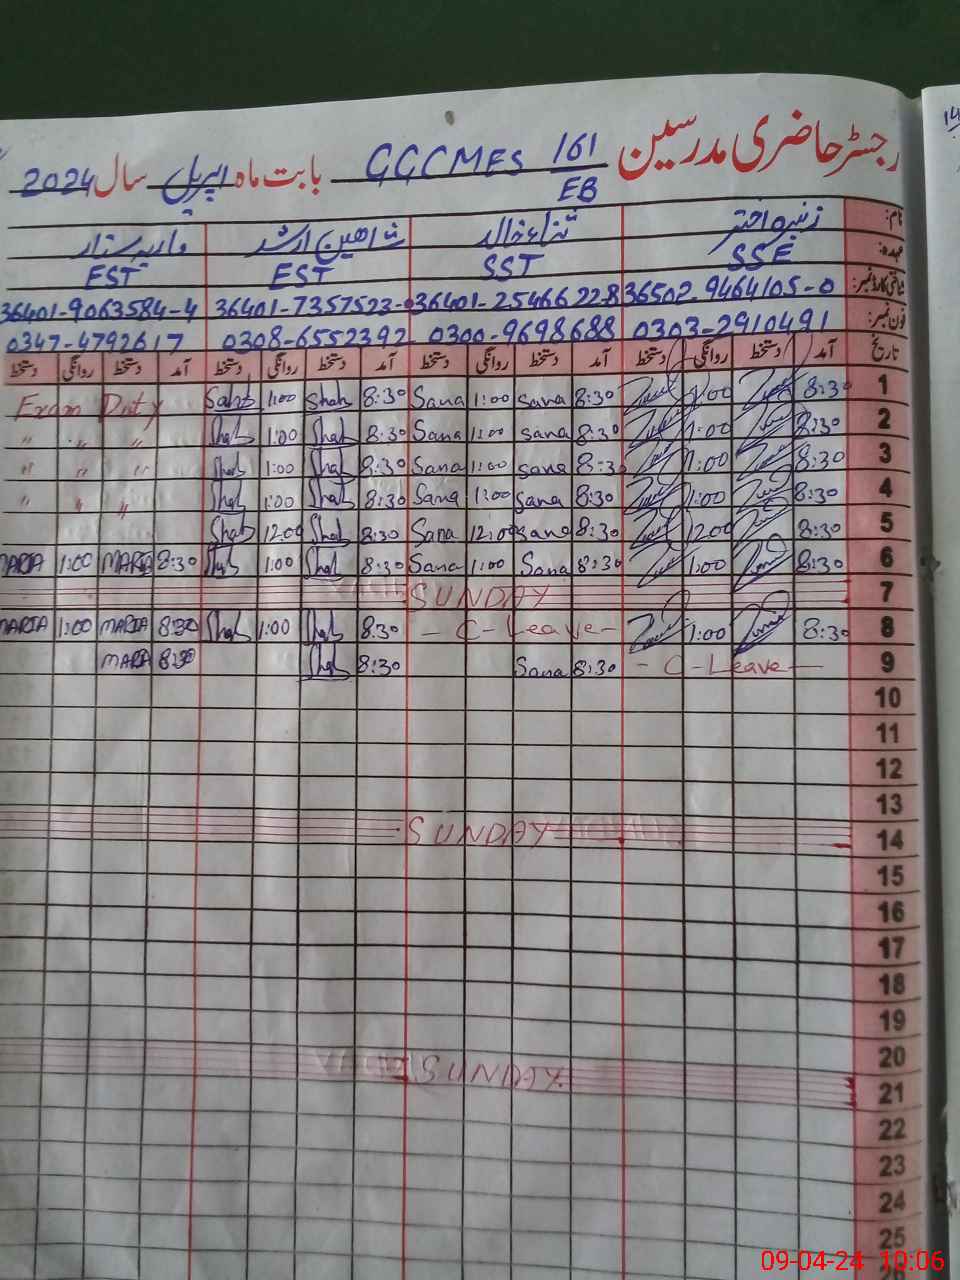 رجسٹر حاضری مدرسین GGCMES 161/EB بابت ماہ اپریل سال 2024
نام: زنیرہ اختر ثناء خالد شاھین ارشد ماریہ ستار
عہدہ: SSE SST EST EST
شناختی کارڈ نمبر: 36502-9464105-0 36401-2546622-8 36401-7357523- 36401-9063584-4
فون نمبر: 0303-2910491 0300-9698688 0308-6552392 0347-4792617
تاریخ آمد دستخط روانگی دستخط آمد دستخط روانگی دستخط آمد دستخط روانگی دستخط آمد دستخط روانگی دستخط
1 8:30 1:00 8:30 Sana 1:00 Sana 8:30 Shah 1:00 Exam Duty
2 8:30 1:00 8:30 Sana 1:00 Sana 8:30 Shah 1:00 Shah " " "
3 8:30 1:00 8:30 Sana 1:00 Sana 8:30 Shah 1:00 Shah " " "
4 8:30 1:00 8:30 Sana 1:00 Sana 8:30 Shah 1:00 Shah " " "
5 8:30 12:00 8:30 Sana 12:00 Sana 8:30 Shah 12:00 Shah
6 8:30 1:00 8:30 Sana 1:00 Sana 8:30 Shah 1:00 Shah 8:30 MARIA 1:00 MARIA
7 SUNDAY
8 8:30 1:00 - C-Leave - 8:30 Shah 1:00 Shah 8:30 MARIA 1:00 MARIA
9 - C-Leave - 8:30 Sana 8:30 Shah 8:30 MARIA
10
11
12
13
14 SUNDAY
15
16
17
18
19
20
21 SUNDAY
22
23
24
25
09-04-24 10:06